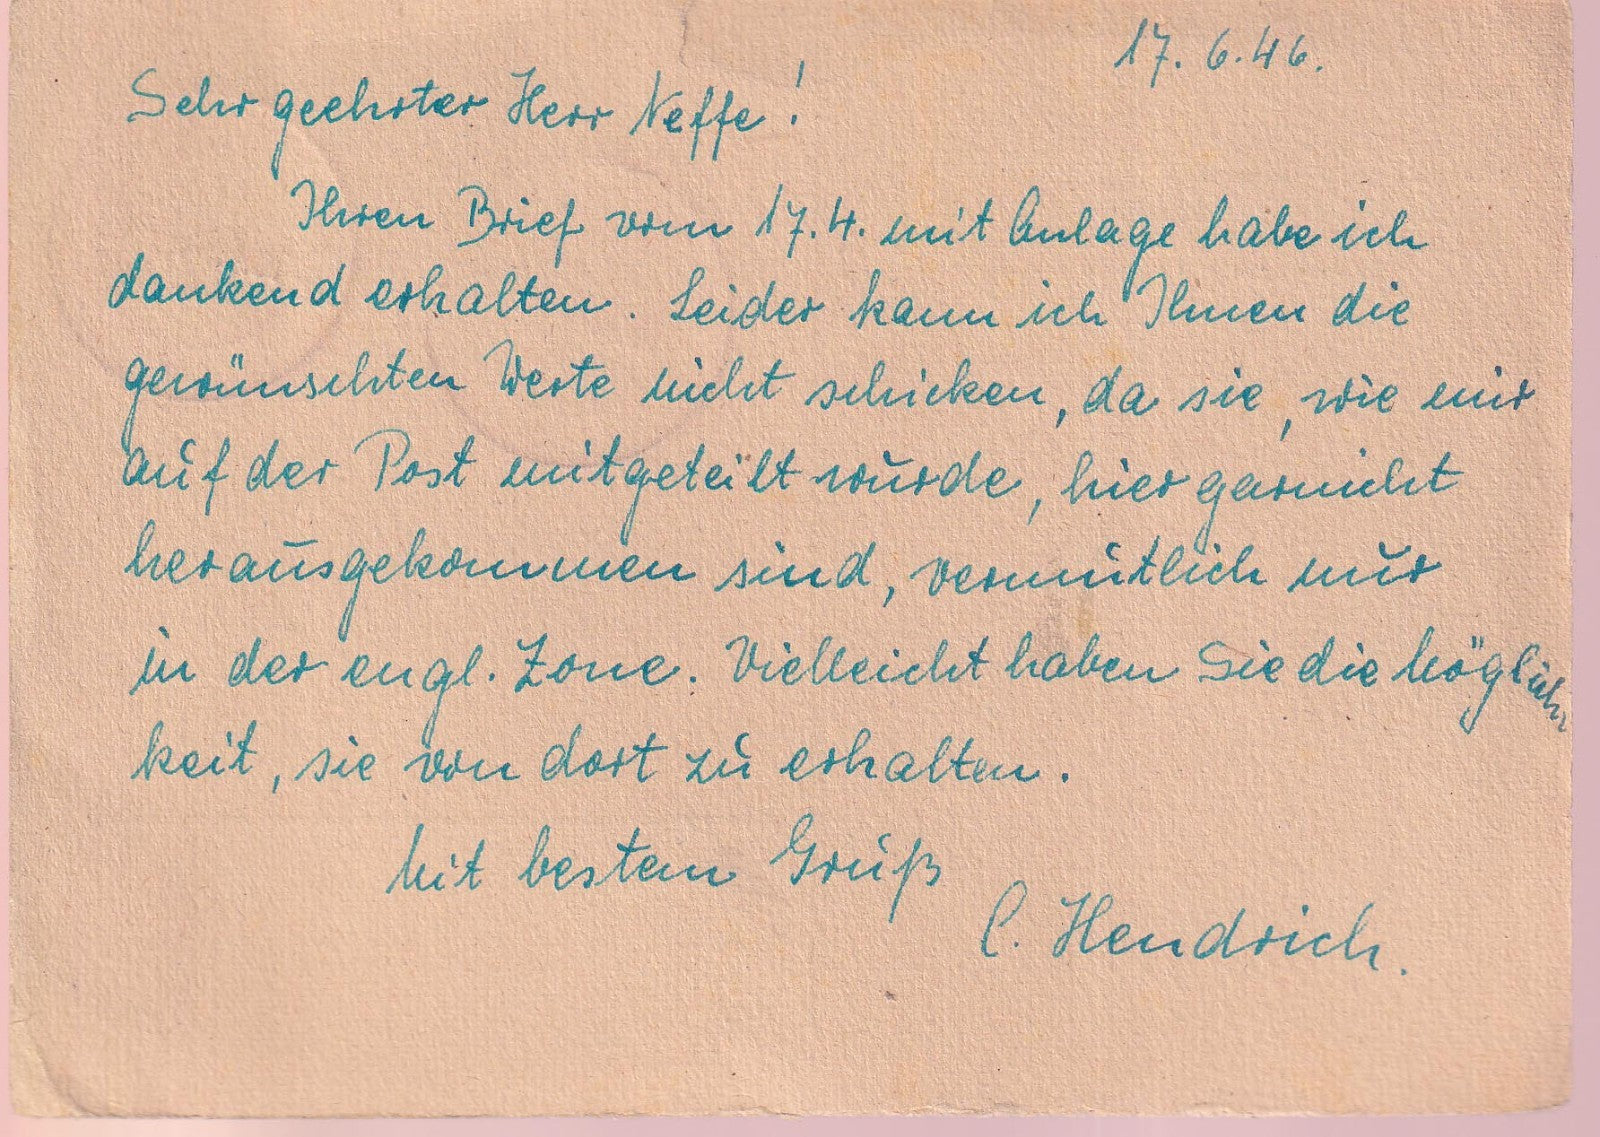 17. 6. 46.
Sehr geehrter Herr Neffe!
Ihren Brief vom 17.4. mit Anlage habe ich
dankend erhalten. Leider kann ich Ihnen die
gewünschten Werte nicht schicken, da sie, wie mir
auf der Post mitgeteilt wurde, hier garnicht
herausgekommen sind, vermutlich nur
in der engl. Zone. Vielleicht haben Sie die Möglich-
keit, sie von dort zu erhalten.
Mit bestem Gruß
C. Hendrich.